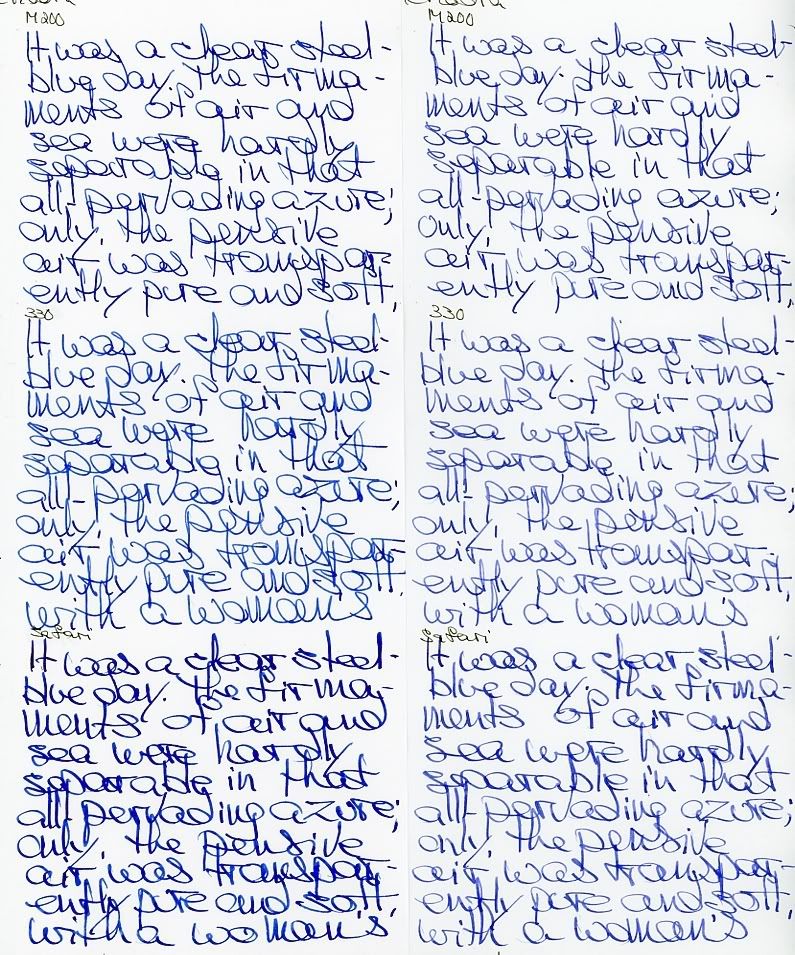 M200
It was a clear steel-
blue day. The firma-
ments of air and
sea were hardly
separable in that
all-pervading azure;
only, the pensive
air was transpar-
ently pure and soft,
330
It was a clear steel-
blue day. The firma-
ments of air and
sea were hardly
separable in that
all-pervading azure;
only, the pensive
air was transpar-
ently pure and soft,
with a woman's
Safari
It was a clear steel-
blue day. The firma-
ments of air and
sea were hardly
separable in that
all-pervading azure;
only, the pensive
air was transpar-
ently pure and soft,
with a woman's
M200
It was a clear steel-
blue day. The firma-
ments of air and
sea were hardly
separable in that
all-pervading azure;
only, the pensive
air was transpar-
ently pure and soft,
330
It was a clear steel-
blue day. The firma-
ments of air and
sea were hardly
separable in that
all-pervading azure;
only, the pensive
air was transpar-
ently pure and soft,
with a woman's
Safari
It was a clear steel-
blue day. The firma-
ments of air and
sea were hardly
separable in that
all-pervading azure;
only, the pensive
air was transpar-
ently pure and soft,
with a woman's